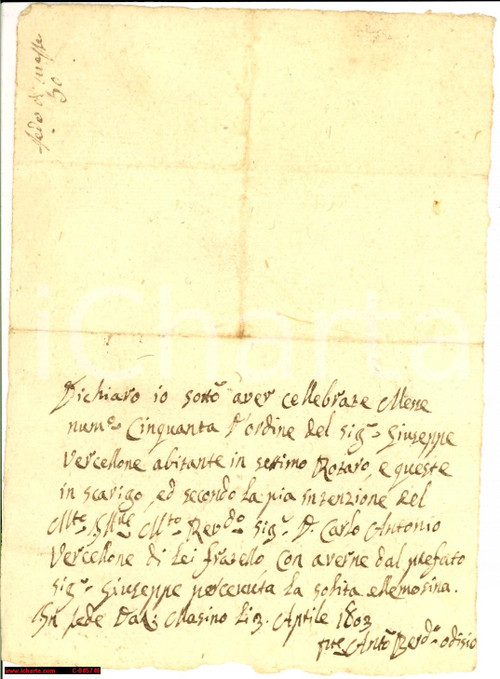 fede di messe
50
iCharta
Dichiaro io sottõ aver cellebrate Messe
numº Cinquanta d'ordine del sigr Giuseppe
Vercellone abitante in settimo Rotaro, e queste
in scarigo, ed secondo la pia intenzione del
Mto Mto Revdo sigr D. Carlo Antonio
Vercellone di Lei fratello, con averne dal prefato
sigr Giuseppe percevuta la solita ellemosina.
In fede Dat. Masino Li 3. Aprile 1803
Antº
www.icharta.com